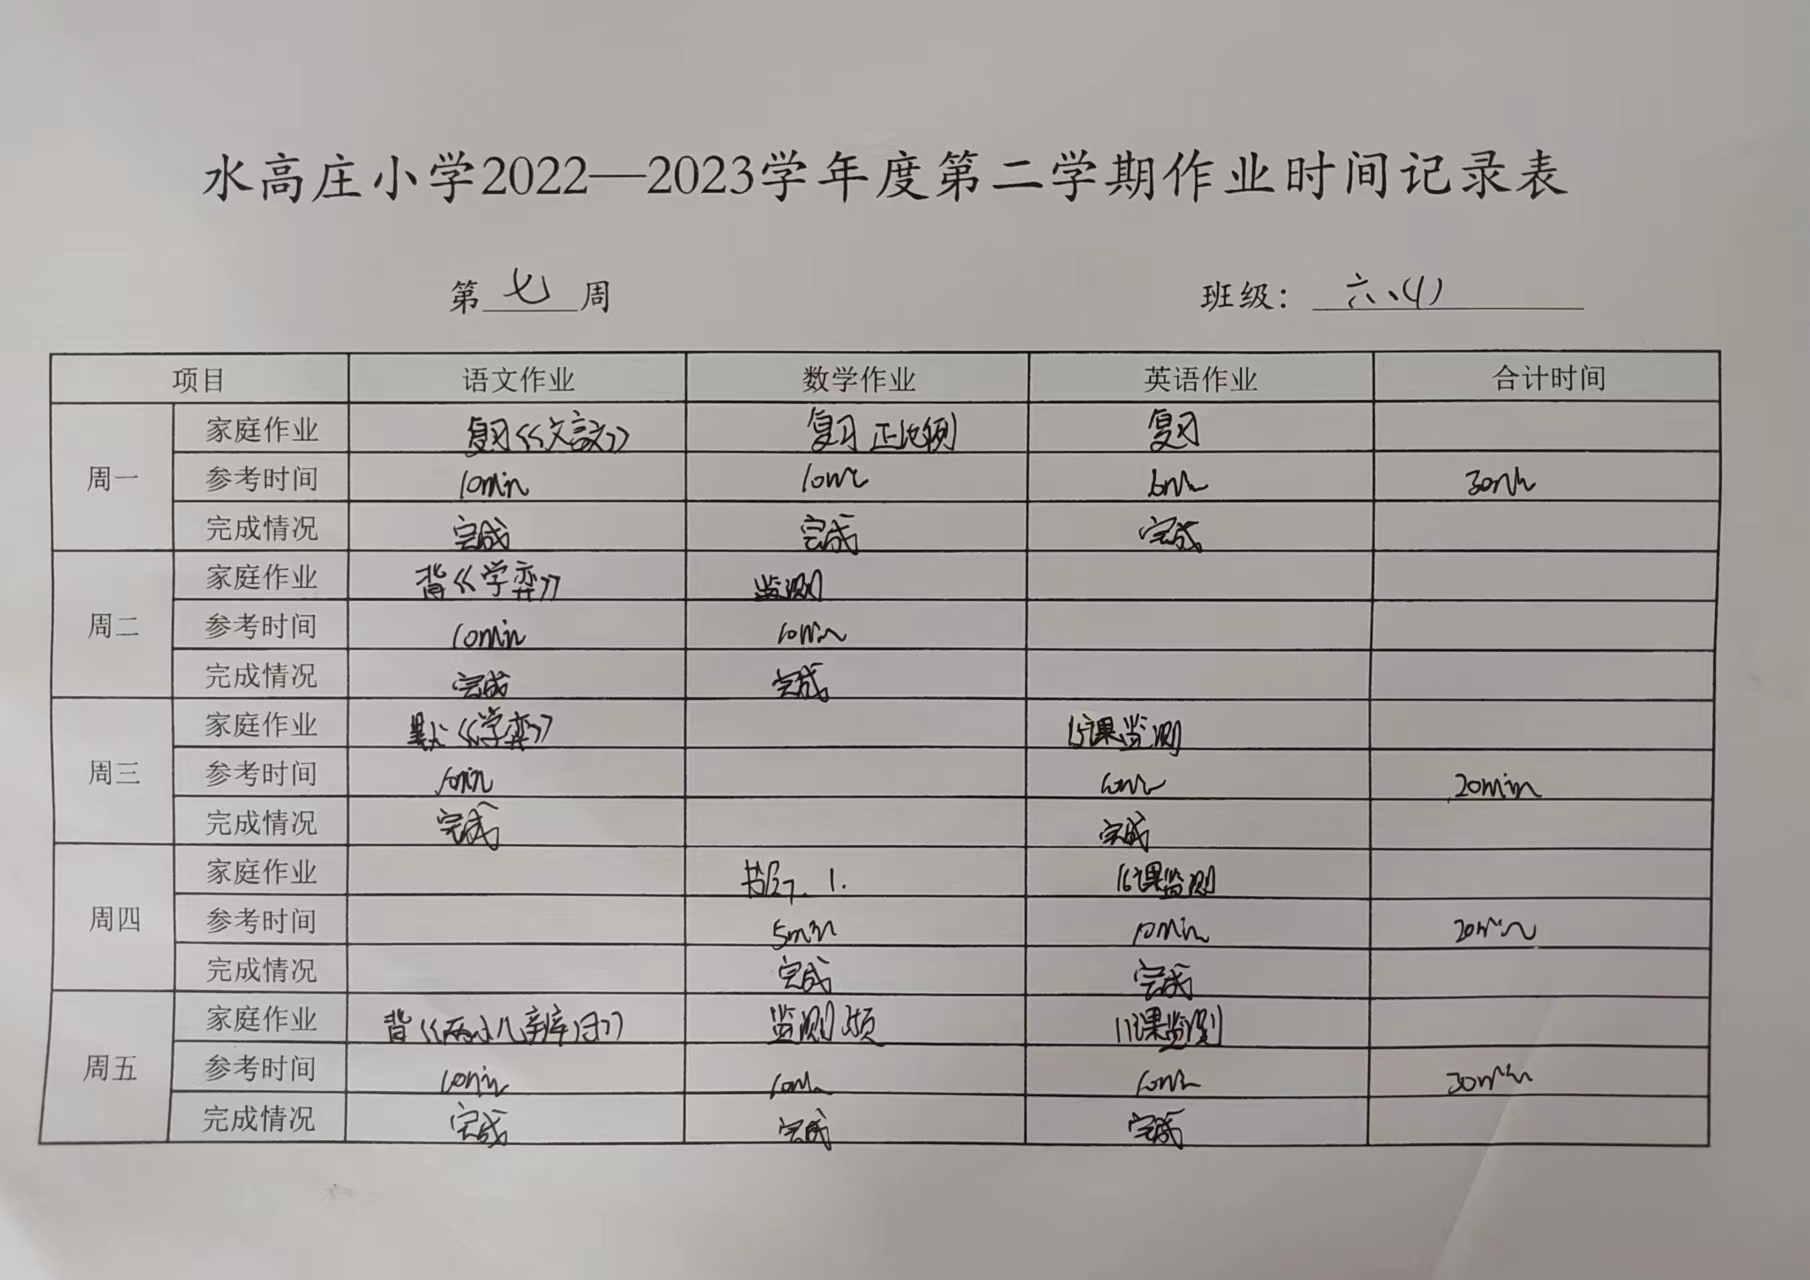 水高庄小学2022—2023学年度第二学期作业时间记录表
第七周 班级：六、(1)
项目 语文作业 数学作业 英语作业 合计时间
周一
家庭作业 复习《文言文》 复习正比例 复习
参考时间 10min 10min 30min
完成情况 完成 完成 完成
周二
家庭作业 背《学弈》 监测
参考时间 10min 10min
完成情况 完成 完成
周三
家庭作业 默《学弈》 15课监测
参考时间 10min 10min 20min
完成情况 完成 完成
周四
家庭作业 书P27. 1. 16课监测
参考时间 5min 10min 20min
完成情况 完成 完成
周五
家庭作业 背《两小儿辩日》 监测 17课监测
参考时间 10min 10min 10min 30min
完成情况 完成 完成 完成